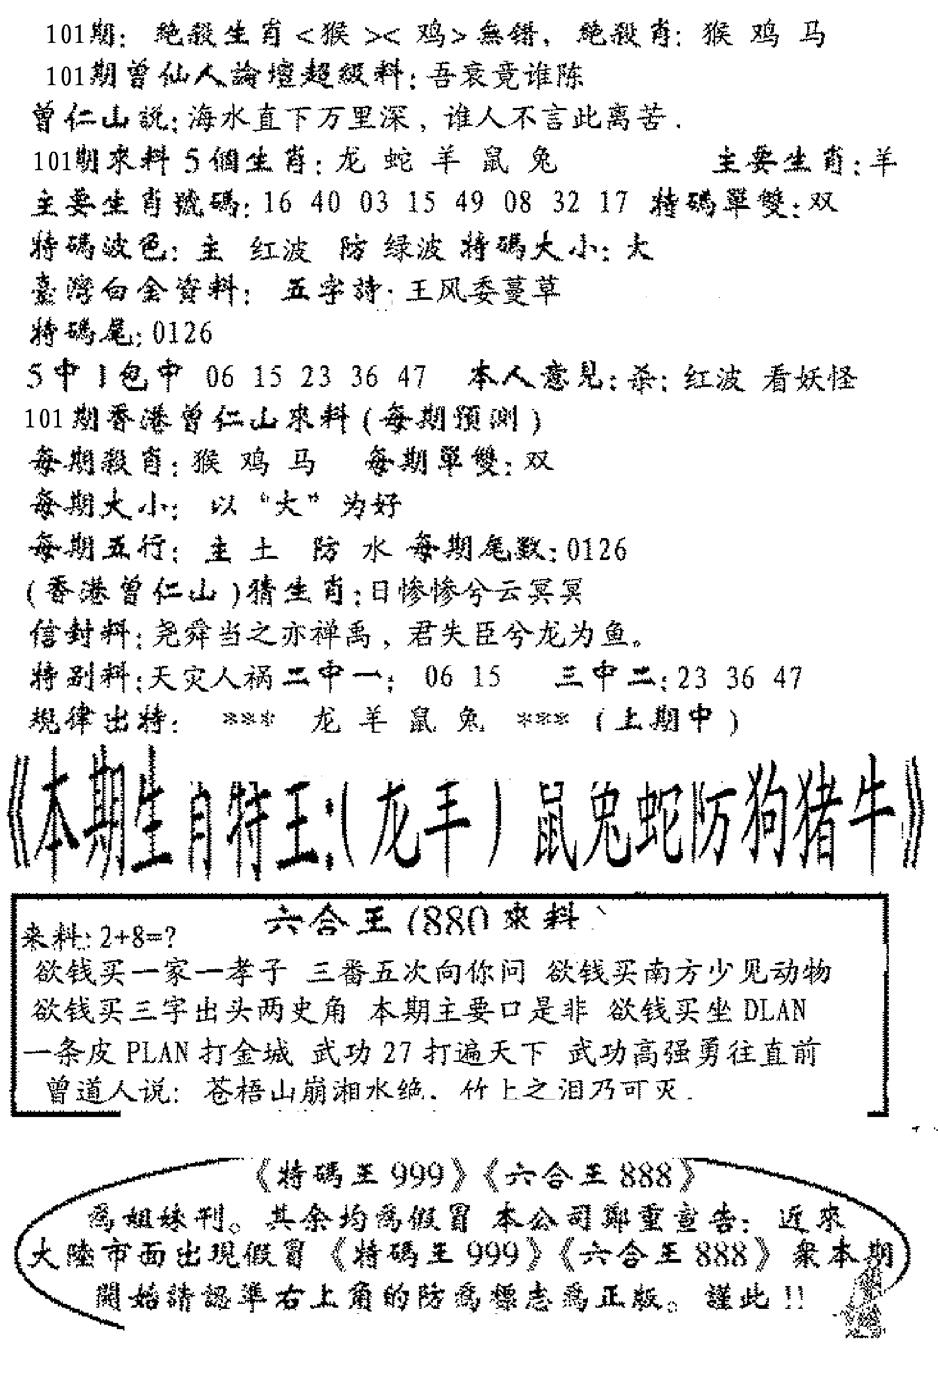 101期: 絶殺生肖<猴><鸡>無錯, 絶殺肖: 猴 鸡 马
101期曾仙人論壇超級料:吾衰竟谁陈
曾仁山説:海水直下万里深, 谁人不言此离苦.
101期來料5個生肖:龙 蛇 羊 鼠 兔 主要生肖:羊
主要生肖號碼:16 40 03 15 49 08 32 17 特碼單雙:双
特碼波色: 主 红波 防 绿波 特碼大小: 大
臺灣白金資料: 五字詩:王风委蔓草
特碼尾:0126
5中1包中 06 15 23 36 47 本人意見:杀: 红波 看妖怪
101期香港曾仁山來料(每期預測)
每期殺肖:猴 鸡 马 每期單雙:双
每期大小: 以“大”为好
每期五行: 主 土 防 水 每期尾数:0126
(香港曾仁山)猜生肖:日惨惨兮云冥冥
信封料:尧舜当之亦禅禹, 君失臣兮龙为鱼。
特别料:天灾人祸 二中一: 06 15 三中二:23 36 47
規律出特: *** 龙 羊 鼠 兔 *** (上期中)
《本期生肖特王:(龙羊)鼠兔蛇防狗猪牛》
六合王(880來料)
来料:2+8=?
欲钱买一家一孝子 三番五次向你问 欲钱买南方少见动物
欲钱买三字出头两史角 本期主要口是非 欲钱买坐DLAN
一条皮PLAN打金城 武功27打遍天下 武功高强勇往直前
曾道人说: 苍梧山崩湘水绝, 竹上之泪乃可灭.
《特碼王999》《六合王888》
爲姐妹刊。其余均爲假冒 本公司鄭重宣告: 近來
大陸市面出現假冒《特碼王999》《六合王888》衆本期
開始請認準右上角的防爲標志爲正版。謹此!!